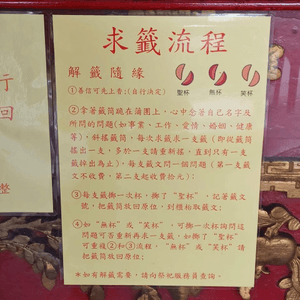 求籤流程
解籤隨緣
聖杯 無杯 笑杯
①善信可先上香:(自行決定)
②拿著籤筒跪在蒲團上,心中念著自己名字及
所問的問題(如事業、工作、愛情、婚姻、健康
等),斜搖籤筒,每次求籤求一支籤(即從籤筒
搖出一支,多於一支請重新搖,直到只有一支
籤掉出為止),每支籤文問一個問題(第一支籤
文不收費,第二支起收費拾元):
③每支籤擲一次杯,擲了"聖杯",記著籤文
號,把籤筒放回原位,到櫃枱取籤文;
④如"無杯"或"笑杯",可擲一次杯詢問這
問題可否重新再求一支籤,如擲了"聖杯"
可重複②和③流程,"無杯"或"笑杯"請
把籤筒放回原位;
*如有解籤需要,請向祭祀服務員查詢。
行
回
整